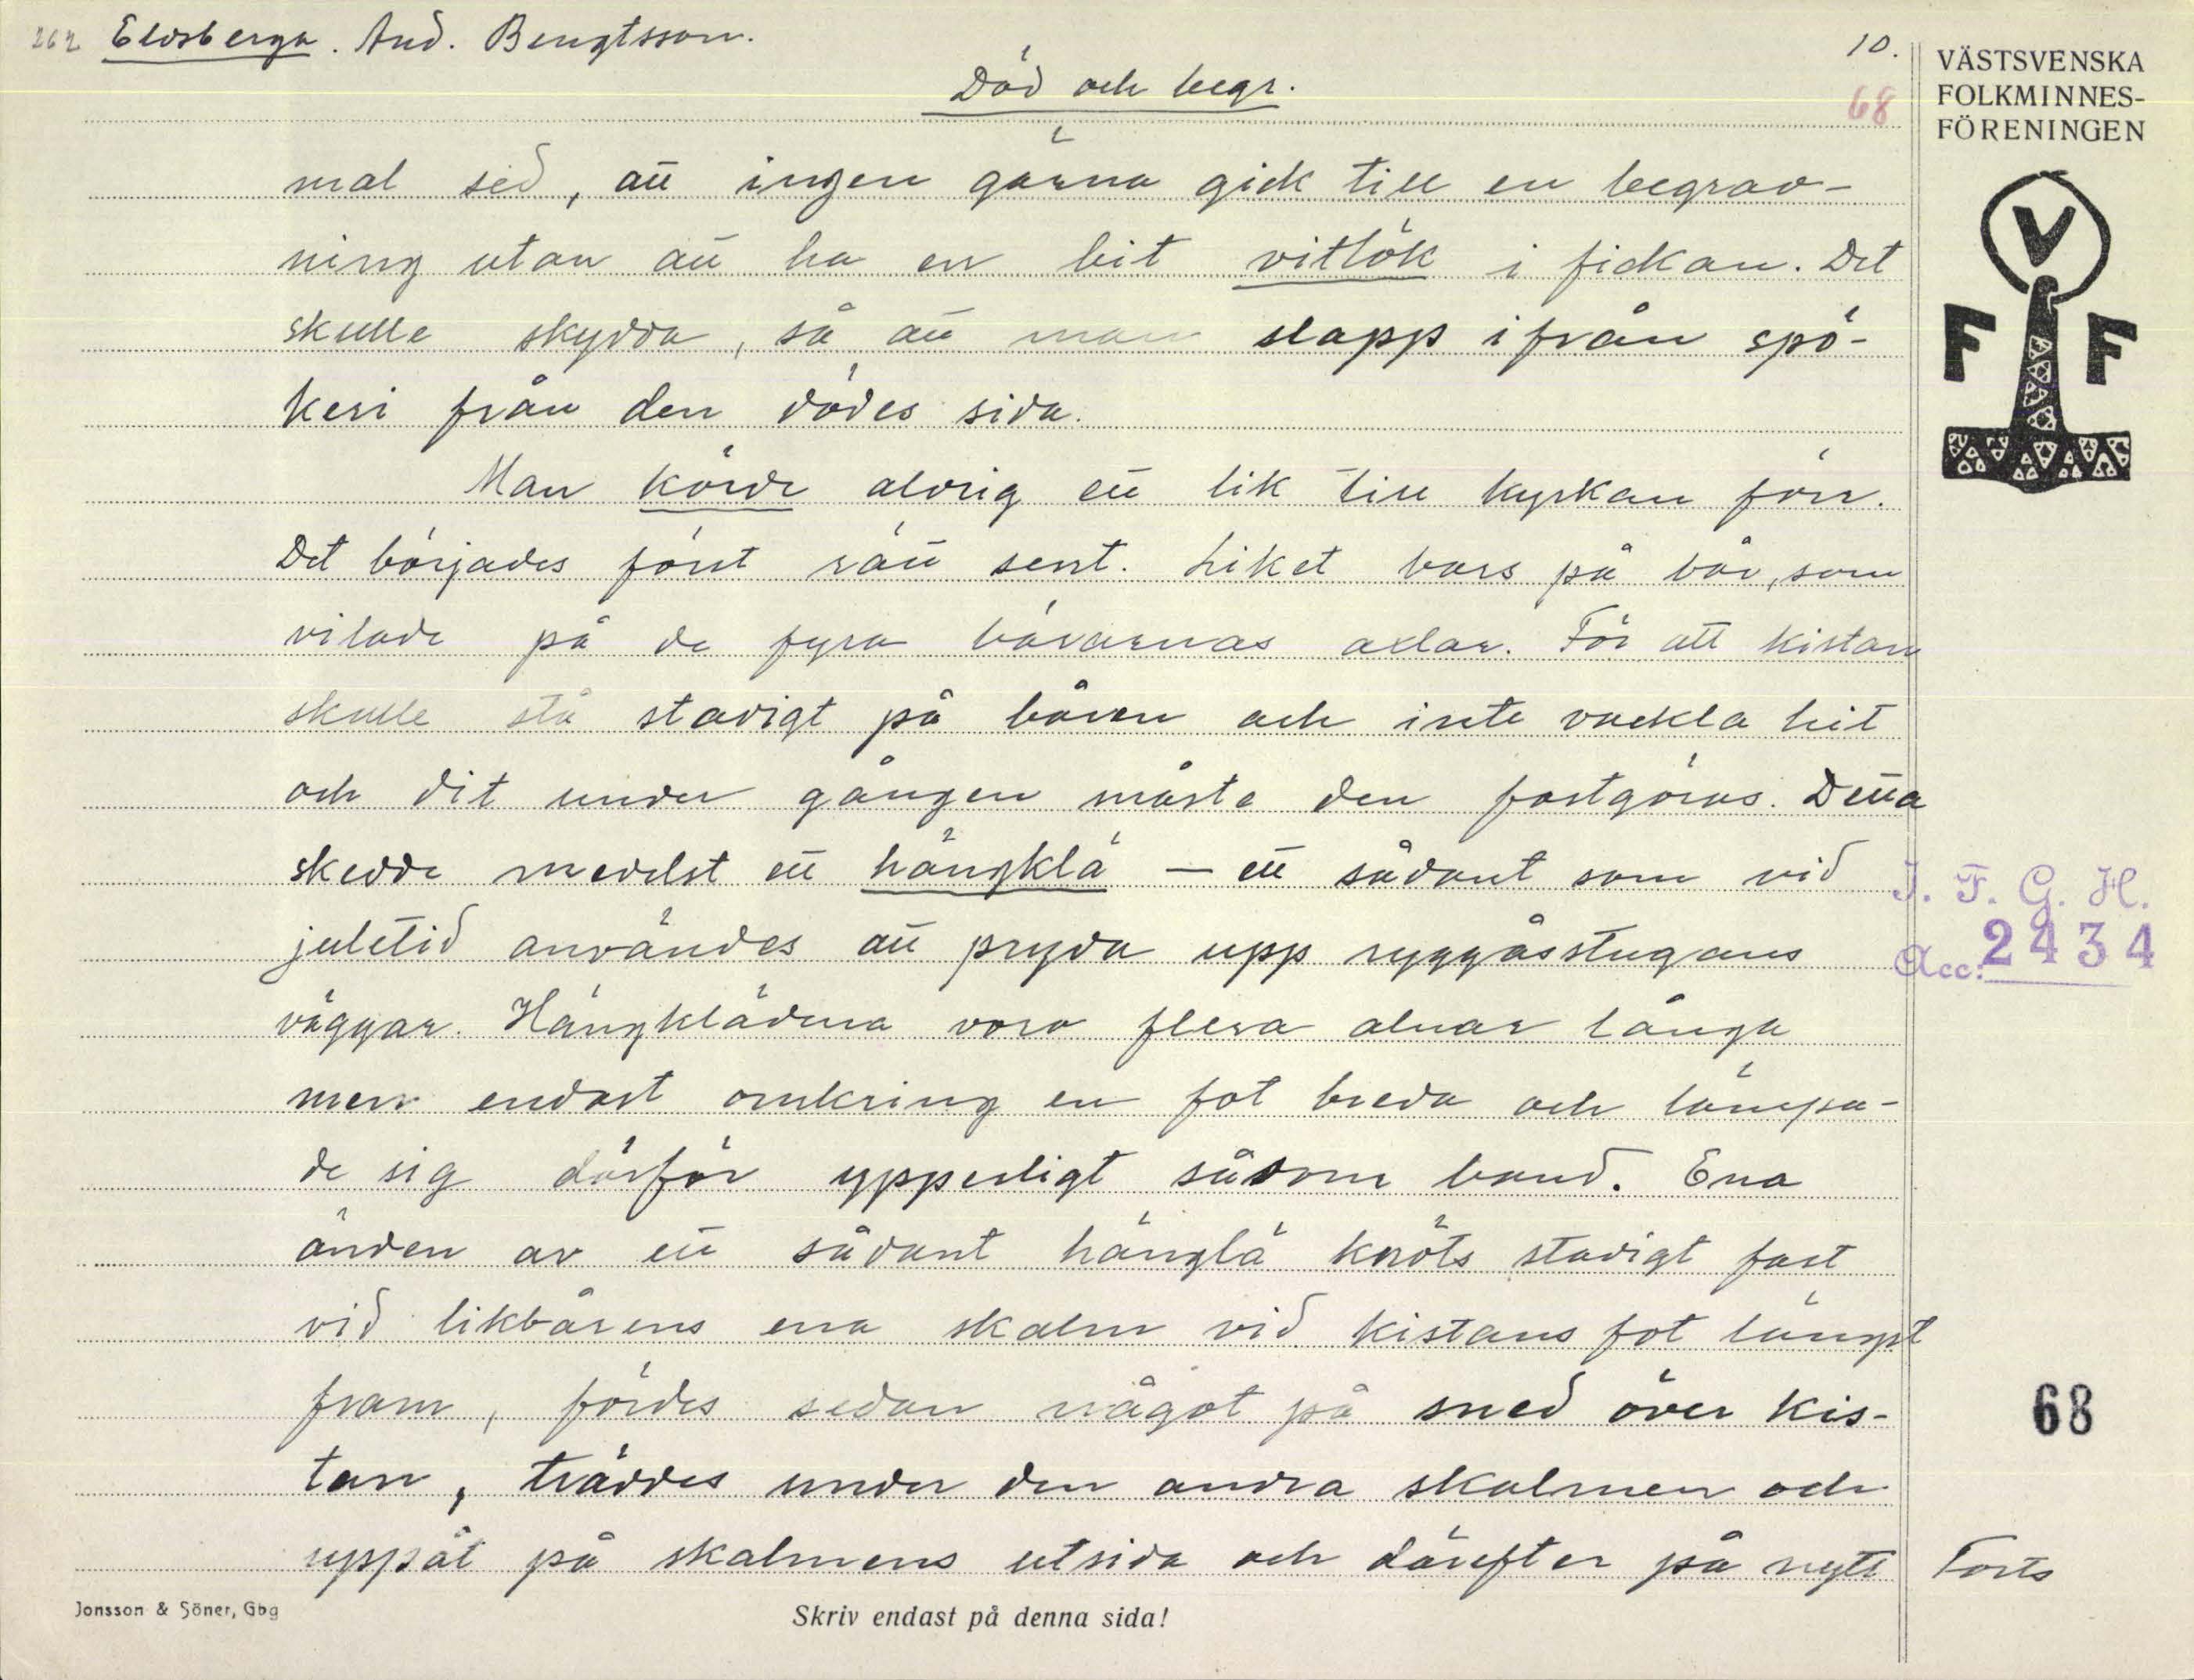 262 Eldsberga. And. Bengtsson.
10.
Död och begr.
68
VÄSTSVENSKA
FOLKMINNES-
FÖRENINGEN
V
F F
mal sed, att ingen gärna gick till en begrav-
ning utan att ha en bit vitlök i fickan. Det
skulle skydda, så att man slapp ifrån spö-
keri från den dödes sida.
Man körde aldrig ett lik till kyrkan förr.
Det börjades först rätt sent. Liket bars på bår, som
vilade på de fyra bärarnas axlar. För att kistan
skulle stå stadigt på båren och inte vackla hit
och dit under gången måste den fastgöras. Detta
skedde medelst ett hängklä – ett sådant som vid
juletid användes att pryda upp ryggåsstugans
väggar. Hängklädena voro flera alnar långa
men endast omkring en fot breda och lämpa-
de sig därför ypperligt såsom band. Ena
änden av ett sådant hänglä knöts stadigt fast
vid likbårens ena skalm vid kistans fot längst
fram, fördes sedan något på sned över kis-
tan, träddes under den andra skalmen och
uppåt på skalmens utsida och därefter på nytt
Forts
I. F. G. H.
Acc: 2434
68
Jonsson & Söner, Gbg
Skriv endast på denna sida!